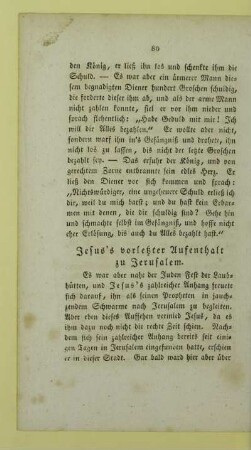 80
den König, er ließ ihn los und schenkte ihm die
Schuld. — Es war aber ein ärmerer Mann die=
sem begnadigten Diener hundert Groschen schuldig,
die forderte dieser ihm ab, und als der arme Mann
nicht zahlen konnte, fiel er vor ihm nieder und
sprach flehentlich: „Habe Geduld mit mir! Ich
will dir Alles bezahlen.“ Er wollte aber nicht,
sondern warf ihn in's Gefängniß und drohete, ihn
nicht los zu lassen, bis nicht der letzte Groschen
bezahlt sey. — Das erfuhr der König, und von
gerechtem Zorne entbrannte sein edles Herz. Er
ließ den Diener vor sich kommen und sprach:
„Nichtswürdiger, eine ungeheure Schuld erließ ich
dir, weil du mich batst; und du hast kein Erbar=
men mit denen, die dir schuldig sind? Gehe hin
und schmachte selbst im Gefängniß, und hoffe nicht
eher Erlösung, bis auch du Alles bezahlt hast.“
Jesus's vorletzter Aufenthalt
zu Jerusalem.
Es war aber nahe der Juden Fest der Laub=
hütten, und Jesus's zahlreicher Anhang freute
sich darauf, ihn als seinen Propheten in jauch=
zendem Schwarme nach Jerusalem zu begleiten.
Aber eben dieses Aufsehen vermied Jesus, da es
ihm dazu noch nicht die rechte Zeit schien. Nach=
dem sich sein zahlreicher Anhang bereits seit eini=
gen Tagen in Jerusalem eingefunden hatte, erschien
er in dieser Stadt. Gar bald ward hier aber über